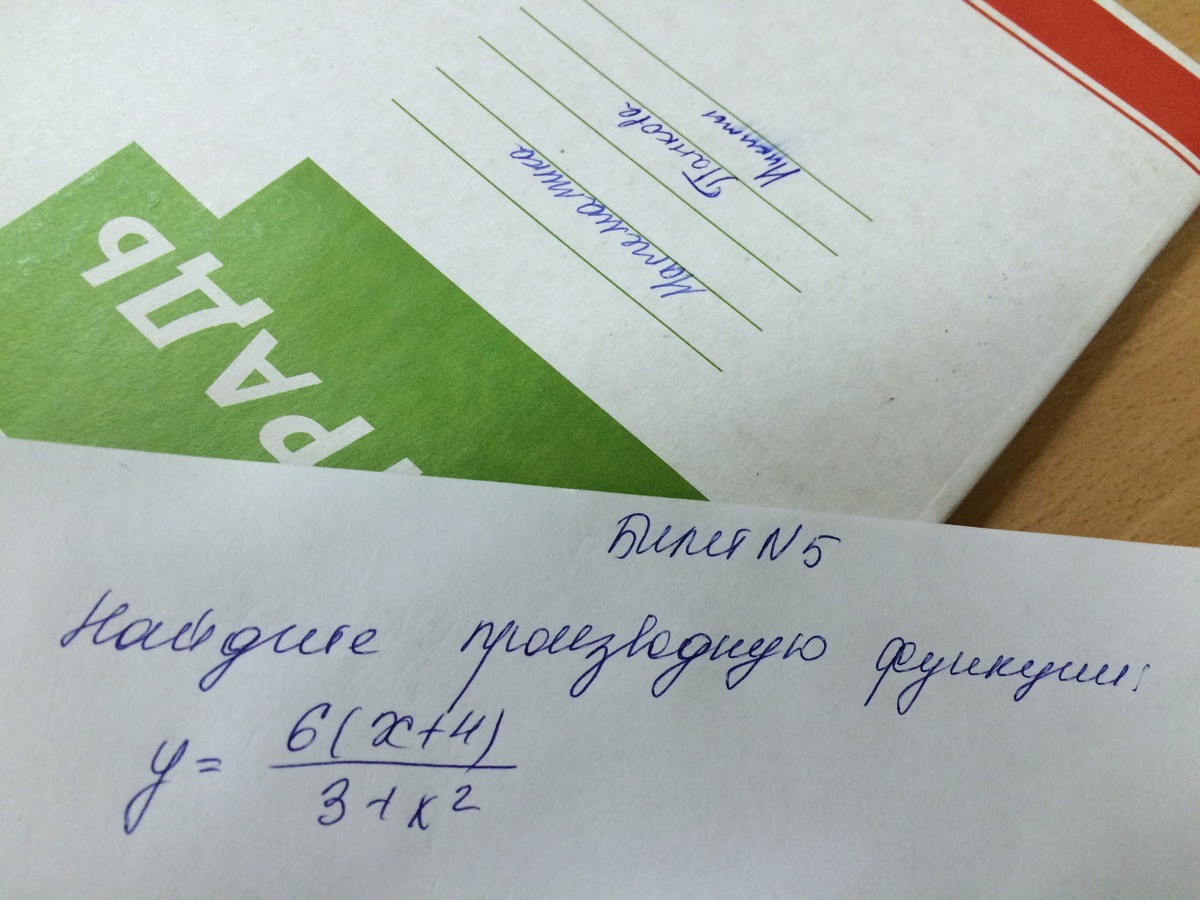 Математика
Папкова
Никиты
РАДЬ
Билет N 5
Найдите производную функции:
y = 6(x+4)
3+x²